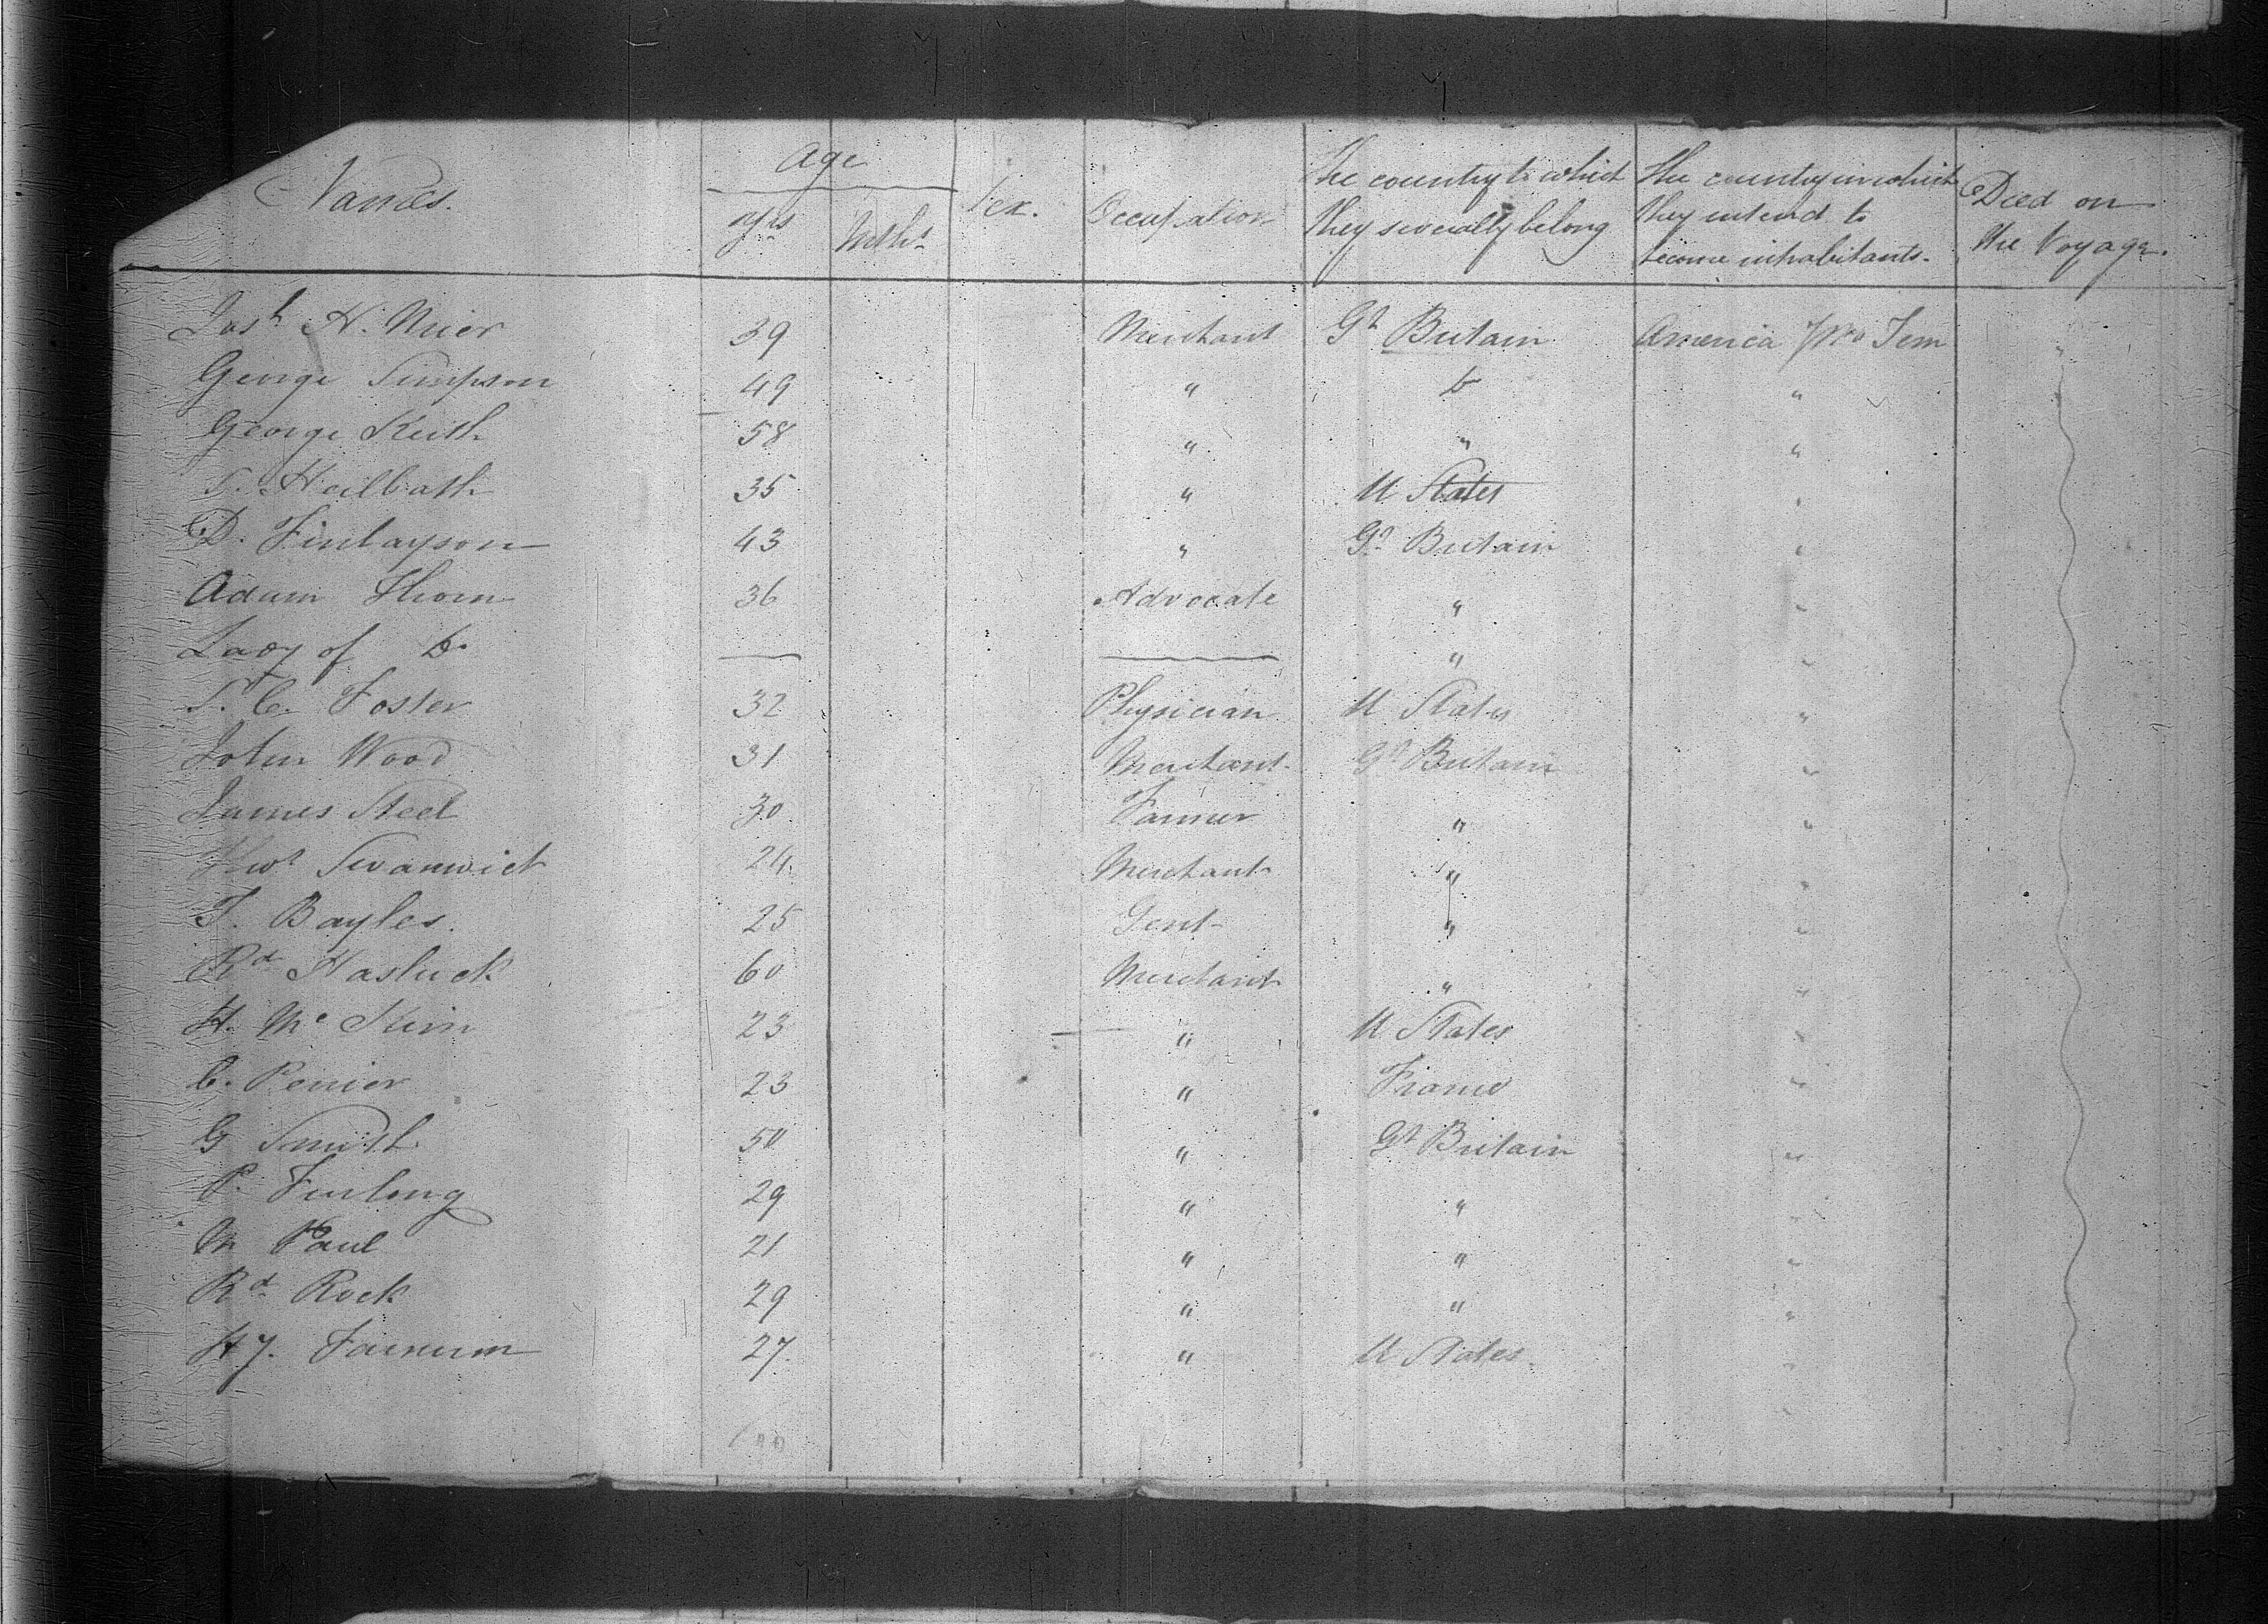 Names. Age Sex. Occupation The country to which they severally belong The country in which they intend to become inhabitants. Died on the Voyage.
yrs Mths
Josh N. Mier 39 Merchant Gt Britain America pro Tem "
George Simpson 49 " Do "
George Keith 58 " " "
S. Heilbath 35 " U States "
D. Finlayson 43 " Gt Britain "
Adam Thom 36 Advocate " "
Lady of Do — — " "
S. C. Foster 32 Physician U States "
John Wood 31 Merchant Gt Britain "
James Steel 30 Farmer " "
Thos Swanwick 24 Merchant " "
T. Bayles. 25 Gent " "
Rd Hasluck 60 Merchant " "
H. Mc Kim 23 " U States "
C. Perier 23 " France "
G Smith 50 " Gt Britain "
P. Furlong 29 " " "
M Paul 21 " " "
Rd Rock 29 " " "
Hy. Farnum 27 " U States "